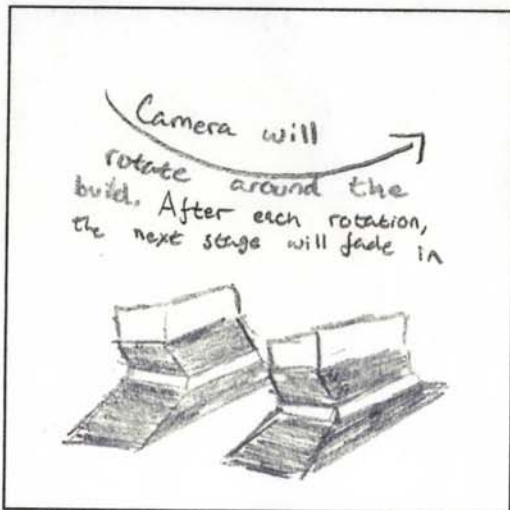 Camera will
rotate around the
build. After each rotation,
the next stage will fade in